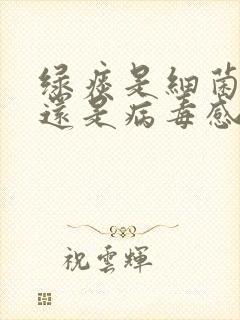 绿痰是細菌
還是病毒感
祝雲輝